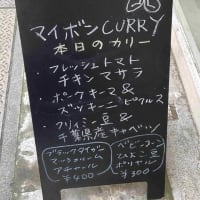 マイボンCURRY
本日のカリー
・フレッシュトマト
チキンマサラ
・ポークキーマ&
ズッキーニピクルス
・クリィミー豆&
千葉県産キャベツ
ブラックタイガー
マッシュルーム
アチャール
¥400
ベビーコーン
ひよこ豆
ポリヤル
¥300